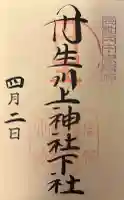 丹生川上神社下社
四月二日